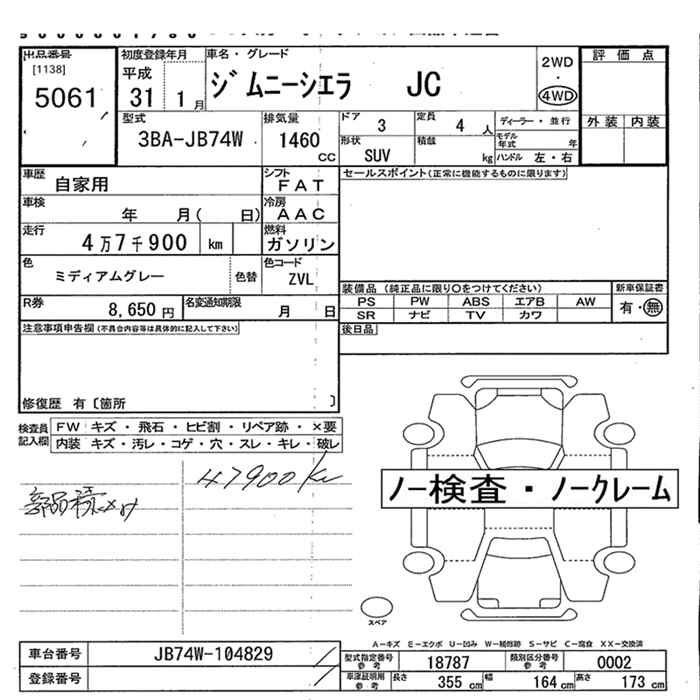 出品番号
[1138]
5061
初度登録年月
平成
31 1 月
車名・グレード
ジムニーシエラ JC
2WD
・
4WD
評価点
外装 内装
型式
3BA-JB74W
排気量
1460
CC
ドア
3
定員
4 人
形状
SUV
積載
kg
ディーラー・並行
モデル年式 年
ハンドル 左・右
車歴
自家用
シフト
FAT
セールスポイント(正常に機能するものに限ります)
車検
年 月( 日)
冷房
AAC
走行
4万7千900 km
燃料
ガソリン
色
ミディアムグレー
色替
色コード
ZVL
装備品 (純正品に限り○をつけてください)
PS PW ABS エアB AW
SR ナビ TV カワ
新車保証書
有・無
R券
8,650 円
名変通知期限
月 日
後日品
注意事項申告欄(不具合内容等は具体的に記入して下さい)
修復歴 有〔箇所 〕
検査員記入欄
FW キズ・飛石・ヒビ割・リペア跡・×要
内装 キズ・汚レ・コゲ・穴・スレ・キレ・破レ
47900 km
ノー検査・ノークレーム
スペア
A-キズ E-エクボ U-凹み W-補修跡 S-サビ C-腐食 XX-交換済
車台番号
JB74W-104829
登録番号
型式指定番号
参考
18787
類別区分番号
参考
0002
車庫証明用
参考
長さ 355 cm
幅 164 cm
高さ 173 cm